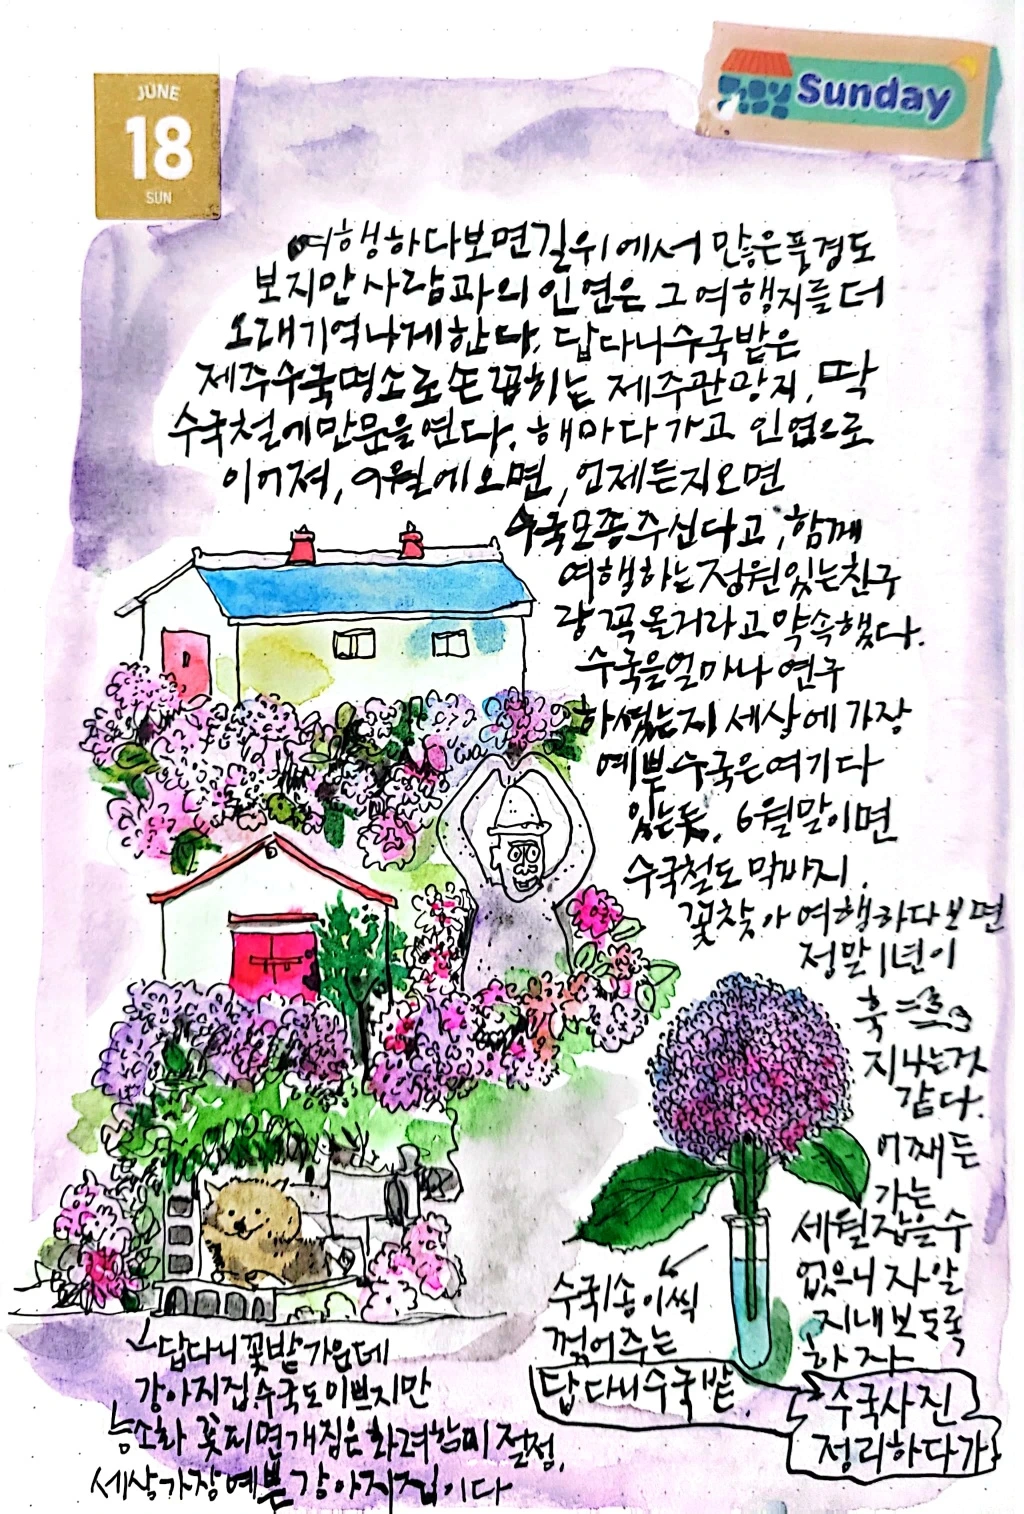 JUNE
18
SUN
Sunday
여행하다보면 길위에서 많은 풍경도
보지만 사람과의 인연은 그 여행지를 더
오래 기억나게 한다. 답다니수국밭은
제주수국명소로 손꼽히는 제주관광지, 딱
수국철에만 문을 연다. 해마다 가고 인연으로
이어져, 9월에 오면, 언제든지 오면
수국모종 주신다고, 함께
여행하는 정원있는 친구
랑 꼭 올거라고 약속했다.
수국을 얼마나 연구
하셨는지 세상에 가장
예쁜 수국은 여기 다
있는듯. 6월말이면
수국철도 막바지.
꽃찾아 여행하다보면
정말 1년이
훅
지나는것
같다.
어째든
가는
세월 잡을수
없으니 자알
지내보도록
하자
수국1송이씩
꺾어주는
답다니수국밭.
수국사진
정리하다가
답다니꽃밭 가운데
강아지집. 수국도 이쁘지만
능소화 꽃피면 개집은 화려함의 절정.
세상 가장 예쁜 강아지집이다